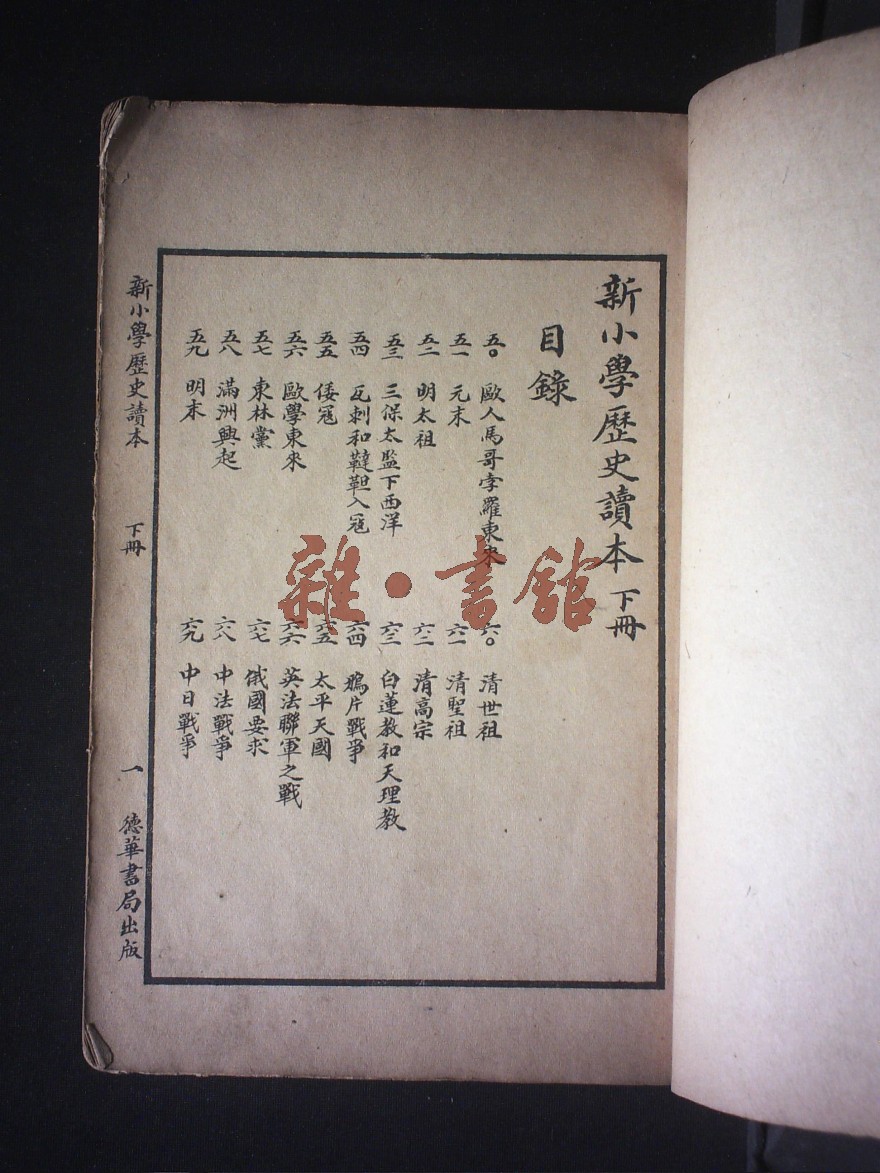 新小學歷史讀本 下冊
目錄
五〇 歐人馬哥孛羅東來
五一 元末
五二 明太祖
五三 三保太監下西洋
五四 瓦剌和韃靼入寇
五五 倭寇
五六 歐學東來
五七 東林黨
五八 滿洲興起
五九 明末
六〇 清世祖
六一 清聖祖
六二 清高宗
六三 白蓮教和天理教
六四 鴉片戰爭
六五 太平天國
六六 英法聯軍之戰
六七 俄國要求
六八 中法戰爭
六九 中日戰爭
新小學歷史讀本 下冊 一 德華書局出版
雜·書館